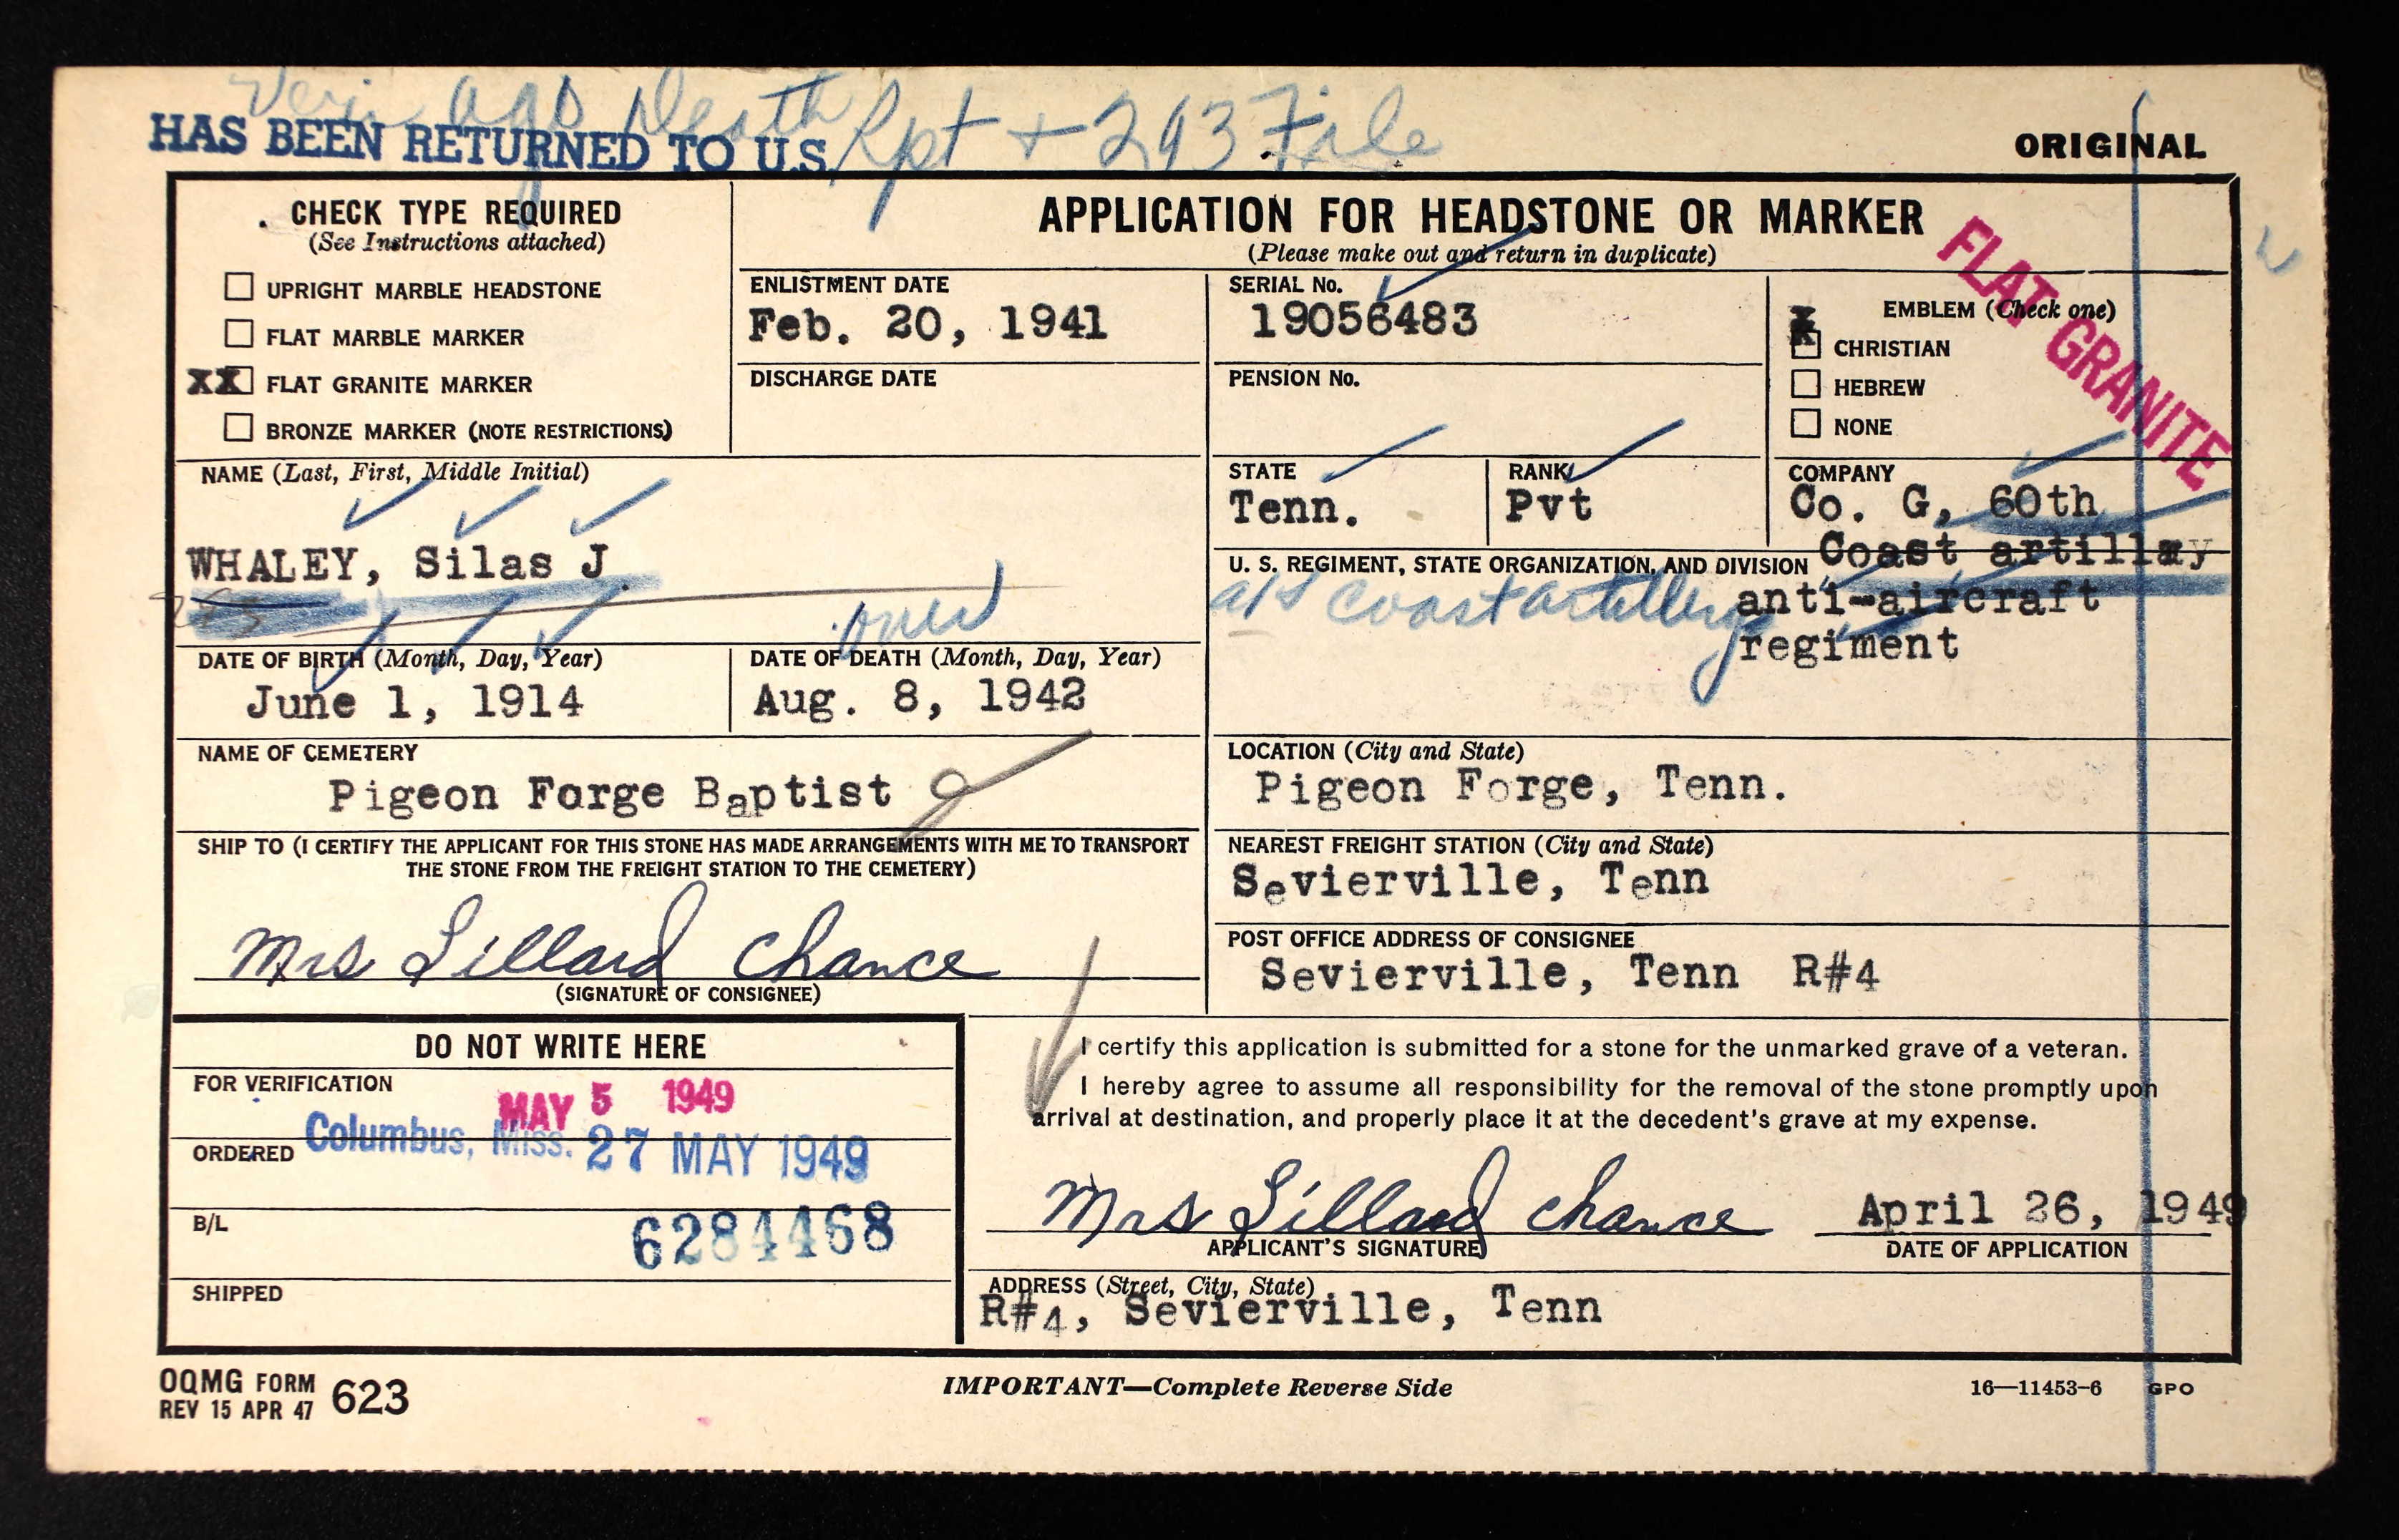 Veri ago Death Rpt + 293 File
HAS BEEN RETURNED TO U.S.
ORIGINAL
CHECK TYPE REQUIRED
(See Instructions attached)
UPRIGHT MARBLE HEADSTONE
FLAT MARBLE MARKER
XX FLAT GRANITE MARKER
BRONZE MARKER (NOTE RESTRICTIONS)
APPLICATION FOR HEADSTONE OR MARKER
(Please make out and return in duplicate)
ENLISTMENT DATE
Feb. 20, 1941
DISCHARGE DATE
SERIAL No.
19056483
PENSION No.
EMBLEM (Check one)
X CHRISTIAN
HEBREW
NONE
FLAT GRANITE
NAME (Last, First, Middle Initial)
WHALEY, Silas J.
STATE
Tenn.
RANK
Pvt
COMPANY
Co. G, 60th
Coast artillery
U. S. REGIMENT, STATE ORGANIZATION, AND DIVISION
anti-aircraft
regiment
Coast artillery
DATE OF BIRTH (Month, Day, Year)
June 1, 1914
DATE OF DEATH (Month, Day, Year)
Aug. 8, 1942
NAME OF CEMETERY
Pigeon Forge Baptist
LOCATION (City and State)
Pigeon Forge, Tenn.
SHIP TO (I CERTIFY THE APPLICANT FOR THIS STONE HAS MADE ARRANGEMENTS WITH ME TO TRANSPORT
THE STONE FROM THE FREIGHT STATION TO THE CEMETERY)
Mrs Lillard Chance
(SIGNATURE OF CONSIGNEE)
NEAREST FREIGHT STATION (City and State)
Sevierville, Tenn
POST OFFICE ADDRESS OF CONSIGNEE
Sevierville, Tenn R#4
DO NOT WRITE HERE
FOR VERIFICATION
MAY 5 1949
ORDERED
Columbus, Miss. 27 MAY 1949
B/L
6284468
SHIPPED
I certify this application is submitted for a stone for the unmarked grave of a veteran.
I hereby agree to assume all responsibility for the removal of the stone promptly upon
arrival at destination, and properly place it at the decedent's grave at my expense.
Mrs Lillard Chance
APPLICANT'S SIGNATURE
April 26, 1949
DATE OF APPLICATION
ADDRESS (Street, City, State)
R#4, Sevierville, Tenn
OQMG FORM 623
REV 15 APR 47
IMPORTANT—Complete Reverse Side
16—11453-6 GPO